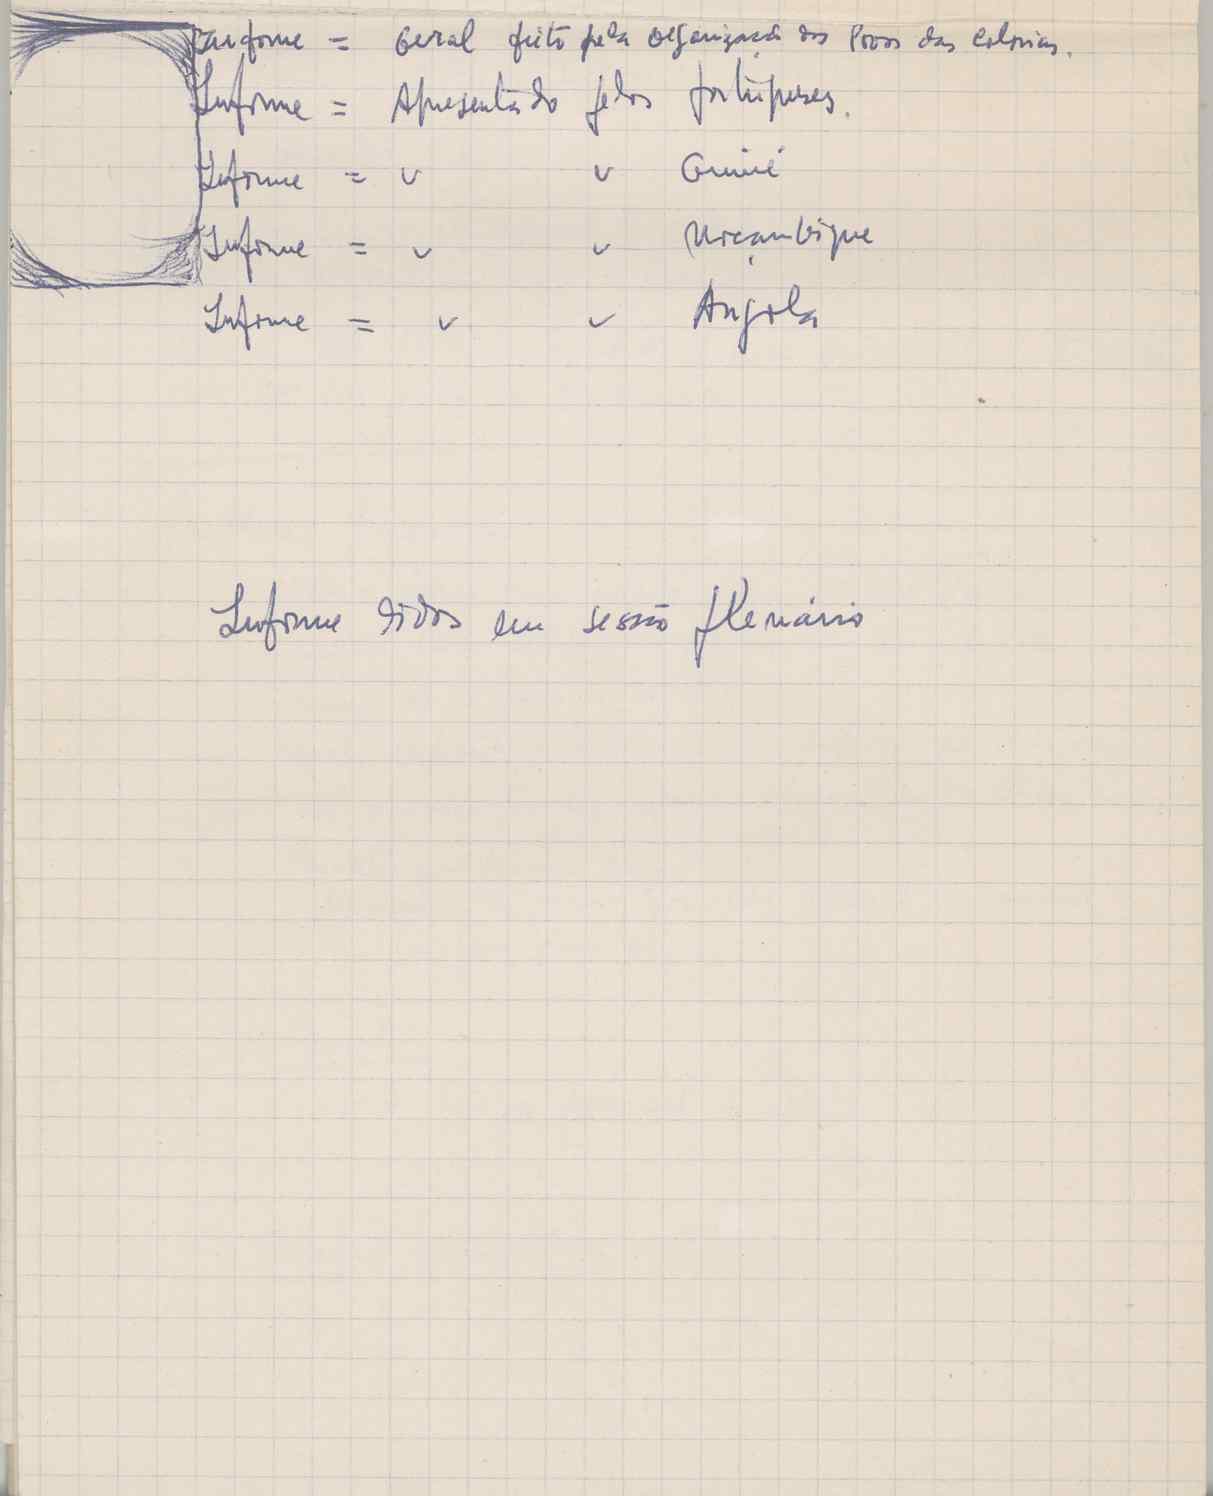 Informe = Geral feito pela Organização dos Povos das Colonias.
Informe = Apresentado pelos portugueses.
Informe = " " Guiné
Informe = " " Moçambique
Informe = " " Angola
Informe lidos em sessão plenário